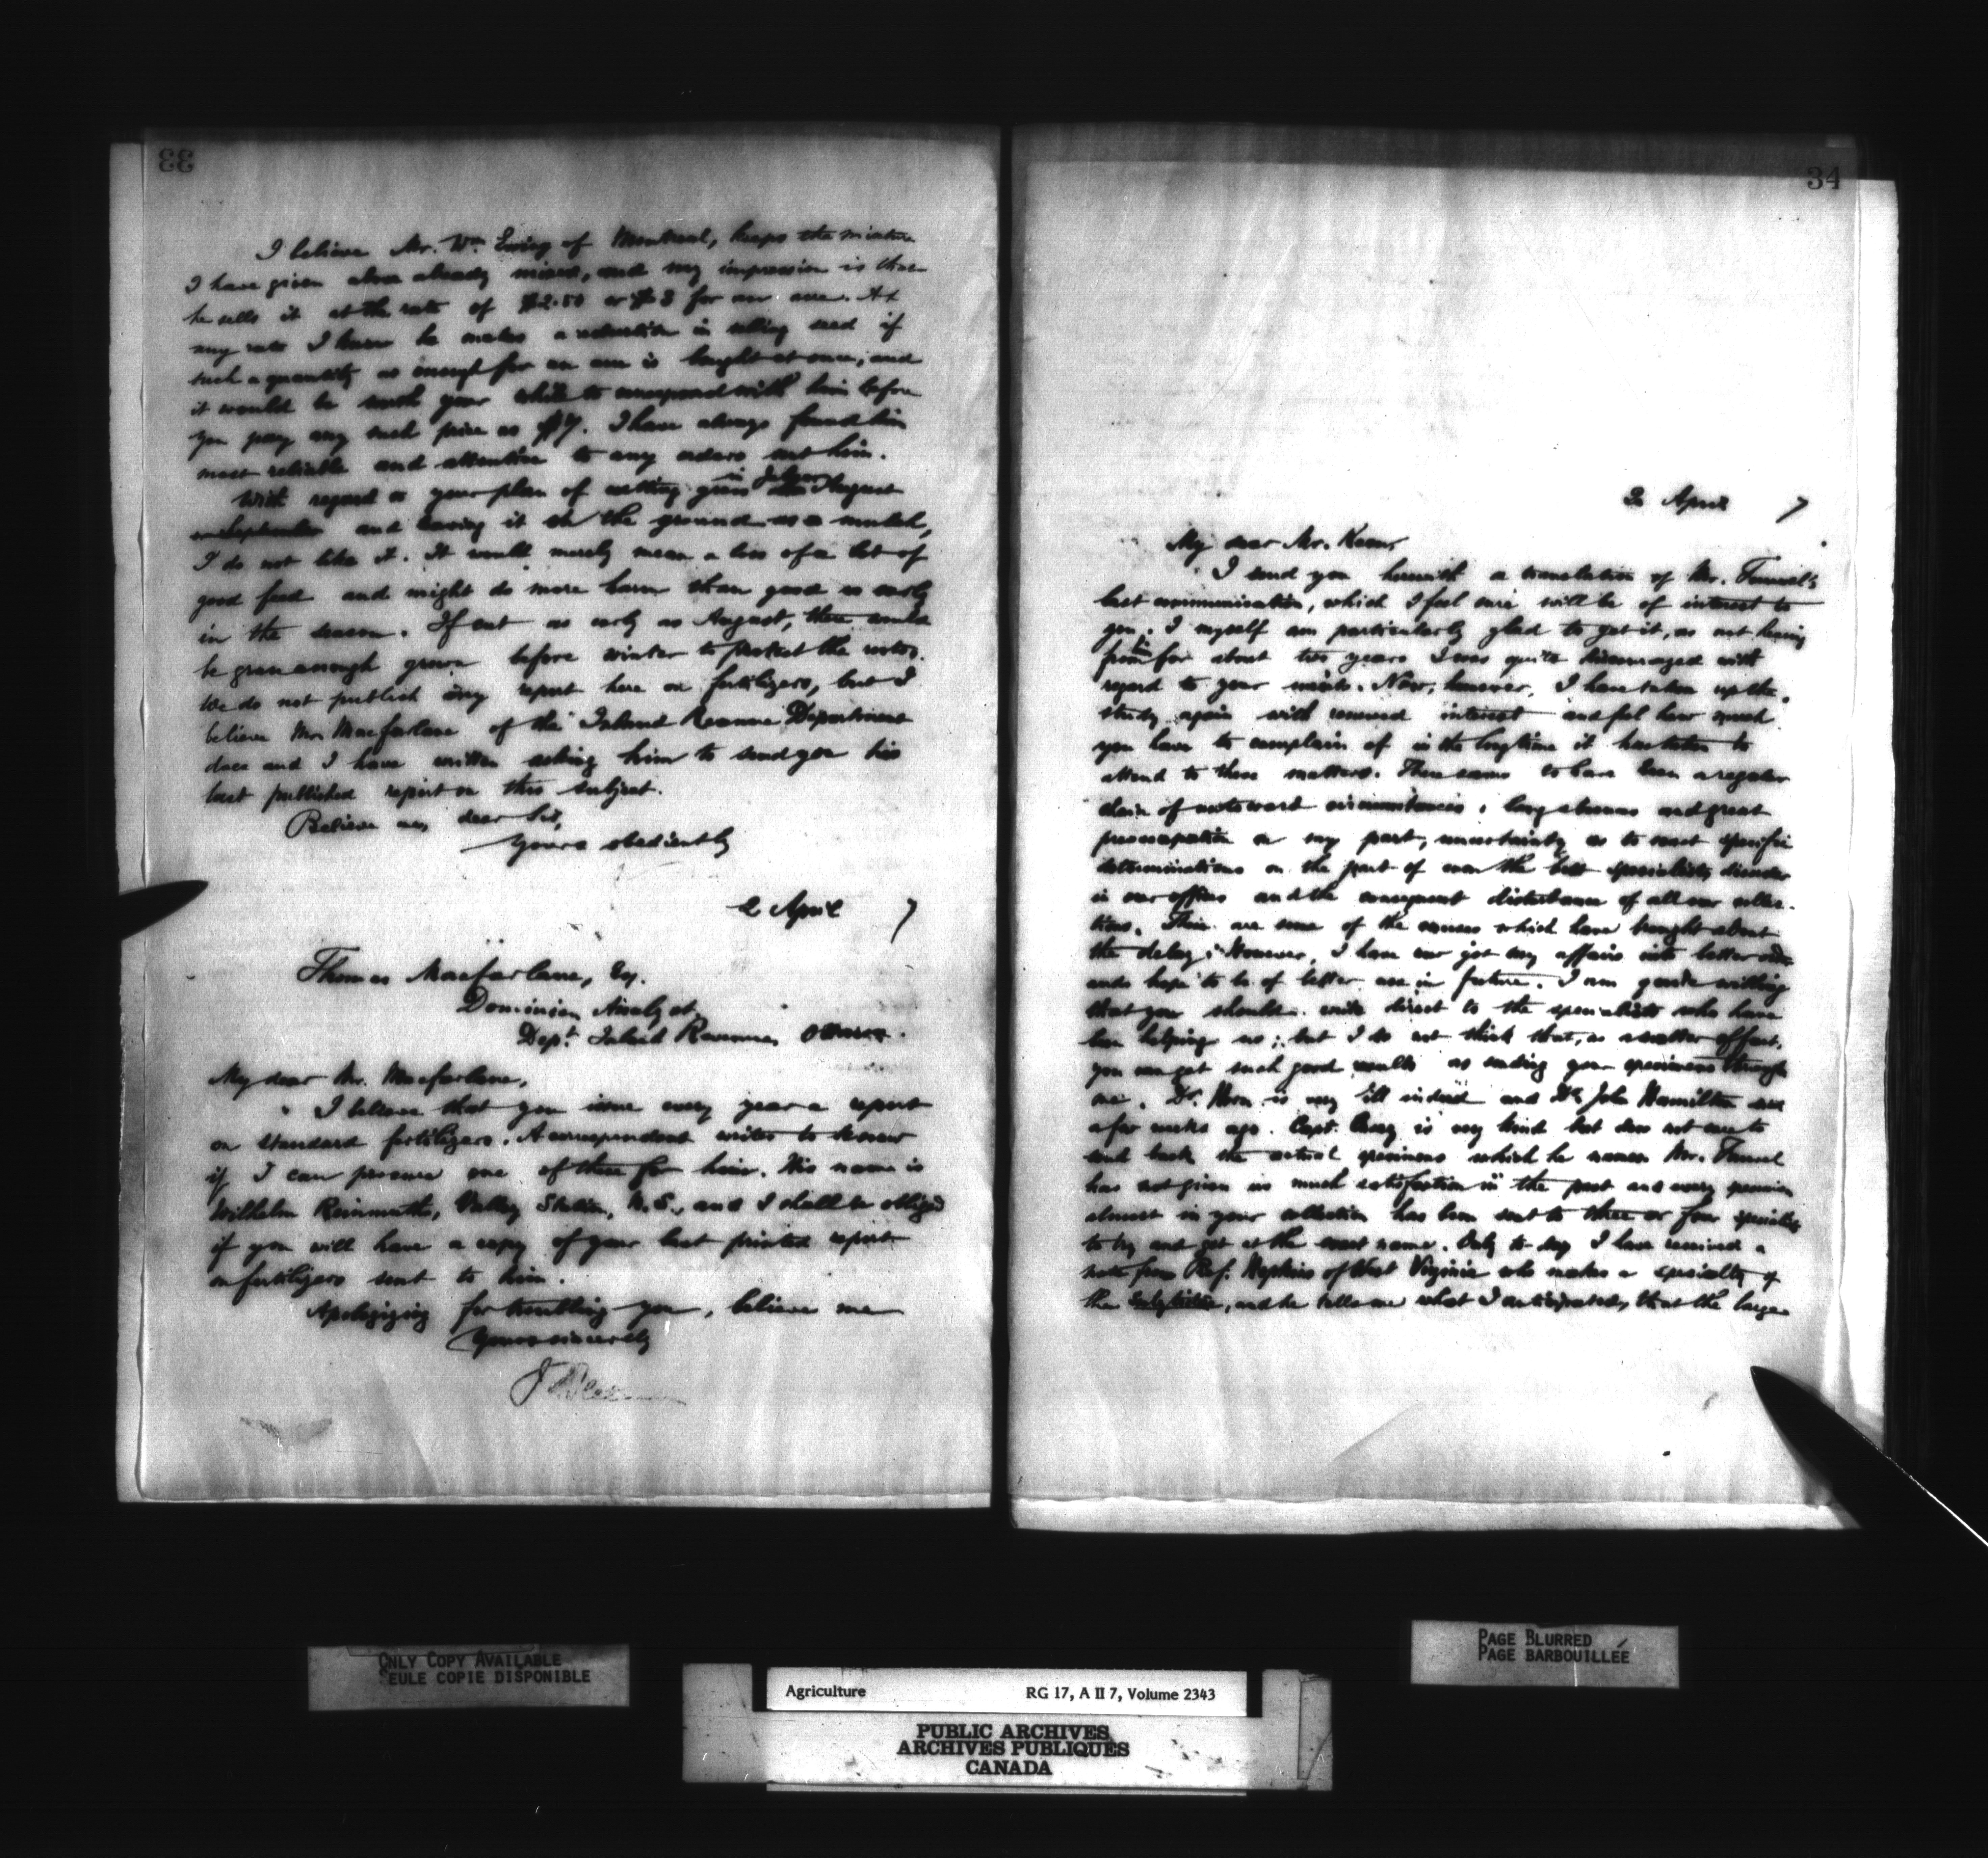 33
I believe Mr. Wm. Ewing of Montreal, keeps the mixture
I have given above already mixed, and my impression is that
he sells it at the rate of $2.50 or $3 for an acre. At
any rate I know he makes a reduction in selling seed if
such a quantity as enough for an acre is bought at once, and
it would be worth your while to correspond with him before
you pay any such price as $7. I have always found him
most reliable and attentive to any orders sent him.
With regard to your plan of cutting grass in July or August
or September and leaving it on the ground as a mulch,
I do not like it. It would merely mean a loss of a lot of
good feed and might do more harm than good so early
in the season. If cut as early as August, there would
be green enough grown before winter to protect the roots.
We do not publish any report here on fertilizers, but I
believe Mr. Macfarlane of the Inland Revenue Department
does and I have written asking him to send you his
last published report on this subject.
Believe me, dear Sir,
Yours obediently
2 April 7
Thomas Macfarlane, Esq.
Dominion Analyst,
Dept. Inland Revenue, Ottawa.
My dear Mr. Macfarlane,
I believe that you issue every year a report
on standard fertilizers. A correspondent writes to know
if I can procure one of these for him. His name is
Wilhelm Reinmuth, Valley Station, N.S., and I shall be obliged
if you will have a copy of your last printed report
on fertilizers sent to him.
Apologizing for troubling you, believe me
Yours sincerely
34
2 April 7
My dear Mr.
I send you herewith a translation of Mr.
last communication, which I feel sure will be of interest to
you. I myself am particularly glad to get it, as not having
for about two years I was quite discouraged with
regard to your insects. Now, however, I have taken up the
study again with renewed interest and feel how much
you have to complain of in the long time it has taken to
attend to these matters. There seems to have been a regular
chain of untoward circumstances: long absences and great
preoccupation on my part, uncertainty as to exact specific
determinations on the part of even the best specialists, disorder
in our offices and the consequent disturbance of all our collec-
tions. These are some of the causes which have brought about
the delay. However, I have now got my affairs into better order
and hope to be of better use in future. I am quite willing
that you should write direct to the specialists who have
been helping us; but I do not think that, as a matter of fact,
you can get such good results as sending your specimens through
me. Dr. Horn is very ill indeed and Dr. John Hamilton died
a few weeks ago. Capt. Casey is very kind but does not care to
send back the actual specimens which he names. Mr.
has not given us much satisfaction in the past and every specimen
almost in your collection has been sent to three or four specialists
to try and get at the exact name. Only to-day I have received a
note from Prof. Hopkins of West Virginia who makes a specialty of
the Scolytidae, and he tells me what I anticipated, that the large
ONLY COPY AVAILABLE
SEULE COPIE DISPONIBLE
PAGE BLURRED
PAGE BARBOUILLÉE
Agriculture RG 17, A II 7, Volume 2343
PUBLIC ARCHIVES
ARCHIVES PUBLIQUES
CANADA